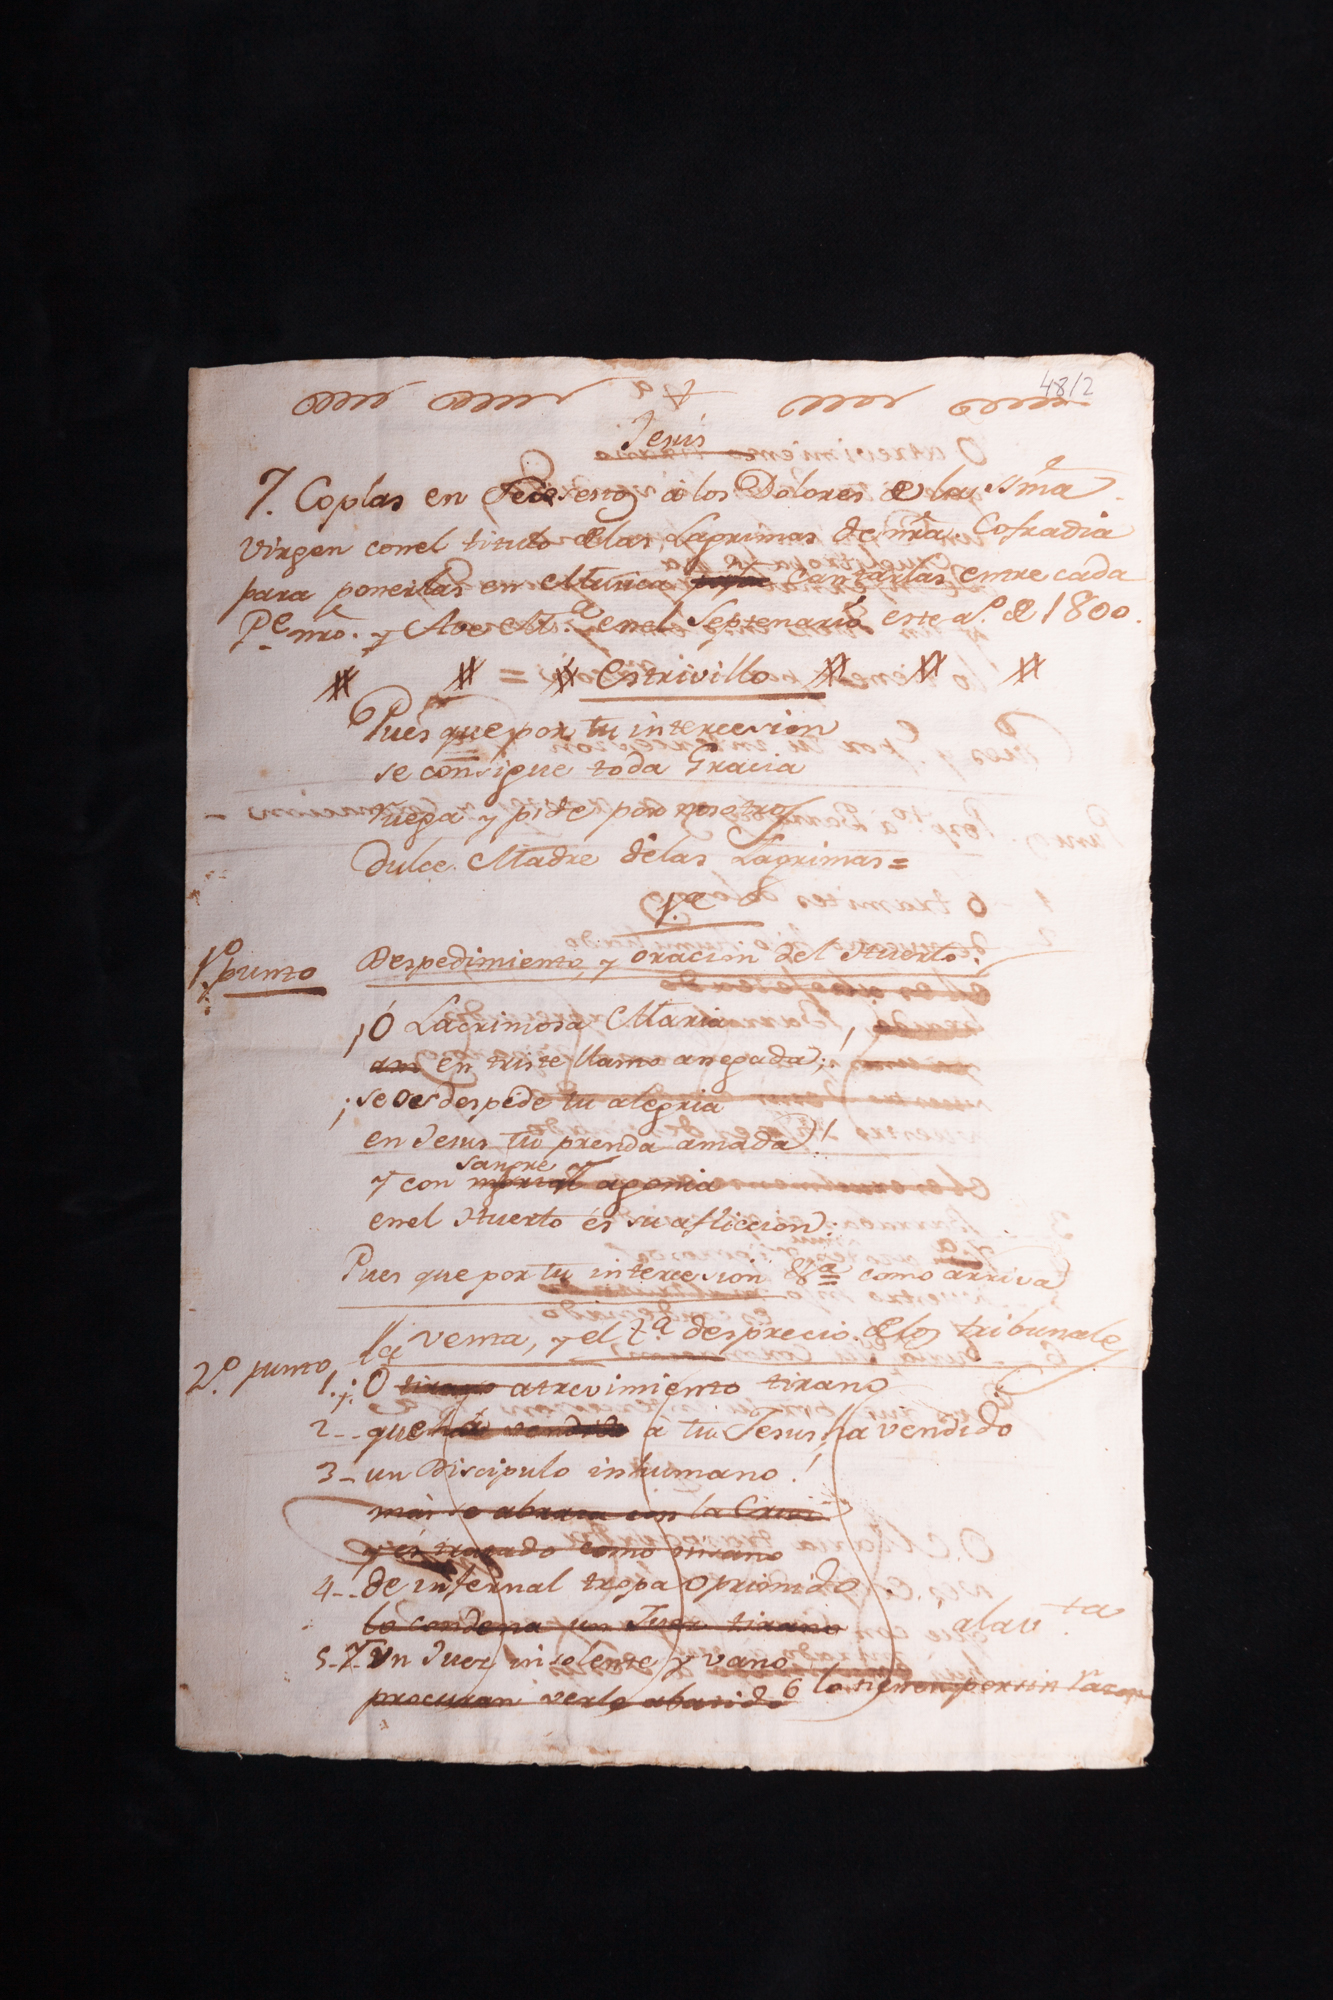 48/2
Jesús
7. Coplas en a los Dolores de la SSma
Virgen conel titulo delas Lagrimas de nra Cofradia
para ponerlas en Musica cantarlas entre cada
Pe. nro. y Ave Mª. enel Septenario este aº. de 1800.
= Estrivillo
Pues que por tu intercesion
se consigue toda Gracia
ruega y pide por nosotros
Dulce Madre delas Lagrimas =
1ª
1º punto Despedimiento, y oracion del Huerto.
¡Ó Lacrimosa Maria
en triste llanto anegada;
¡se os despide tu alegria
en Jesus tu prenda amada!
sangre
y con mortal agonia
enel Huerto és su afliccion.
Pues que por tu intercesion &ª como arriva
2º. punto la venta, y el desprecio delos tribunales
1. ¡O tirano atrevimiento tirano
2-- que ha vendido à tu Jesus ha vendido
3- un Discipulo inhumano!
mas se abraza con la Cruz
y és tratado como tirano
4-- de infernal tropa oprimido
lo condena un Juez tirano
a la vta
5-7- Un Juez insolente y vano
procuran verlo abatido 6 lo tienen por sin razon